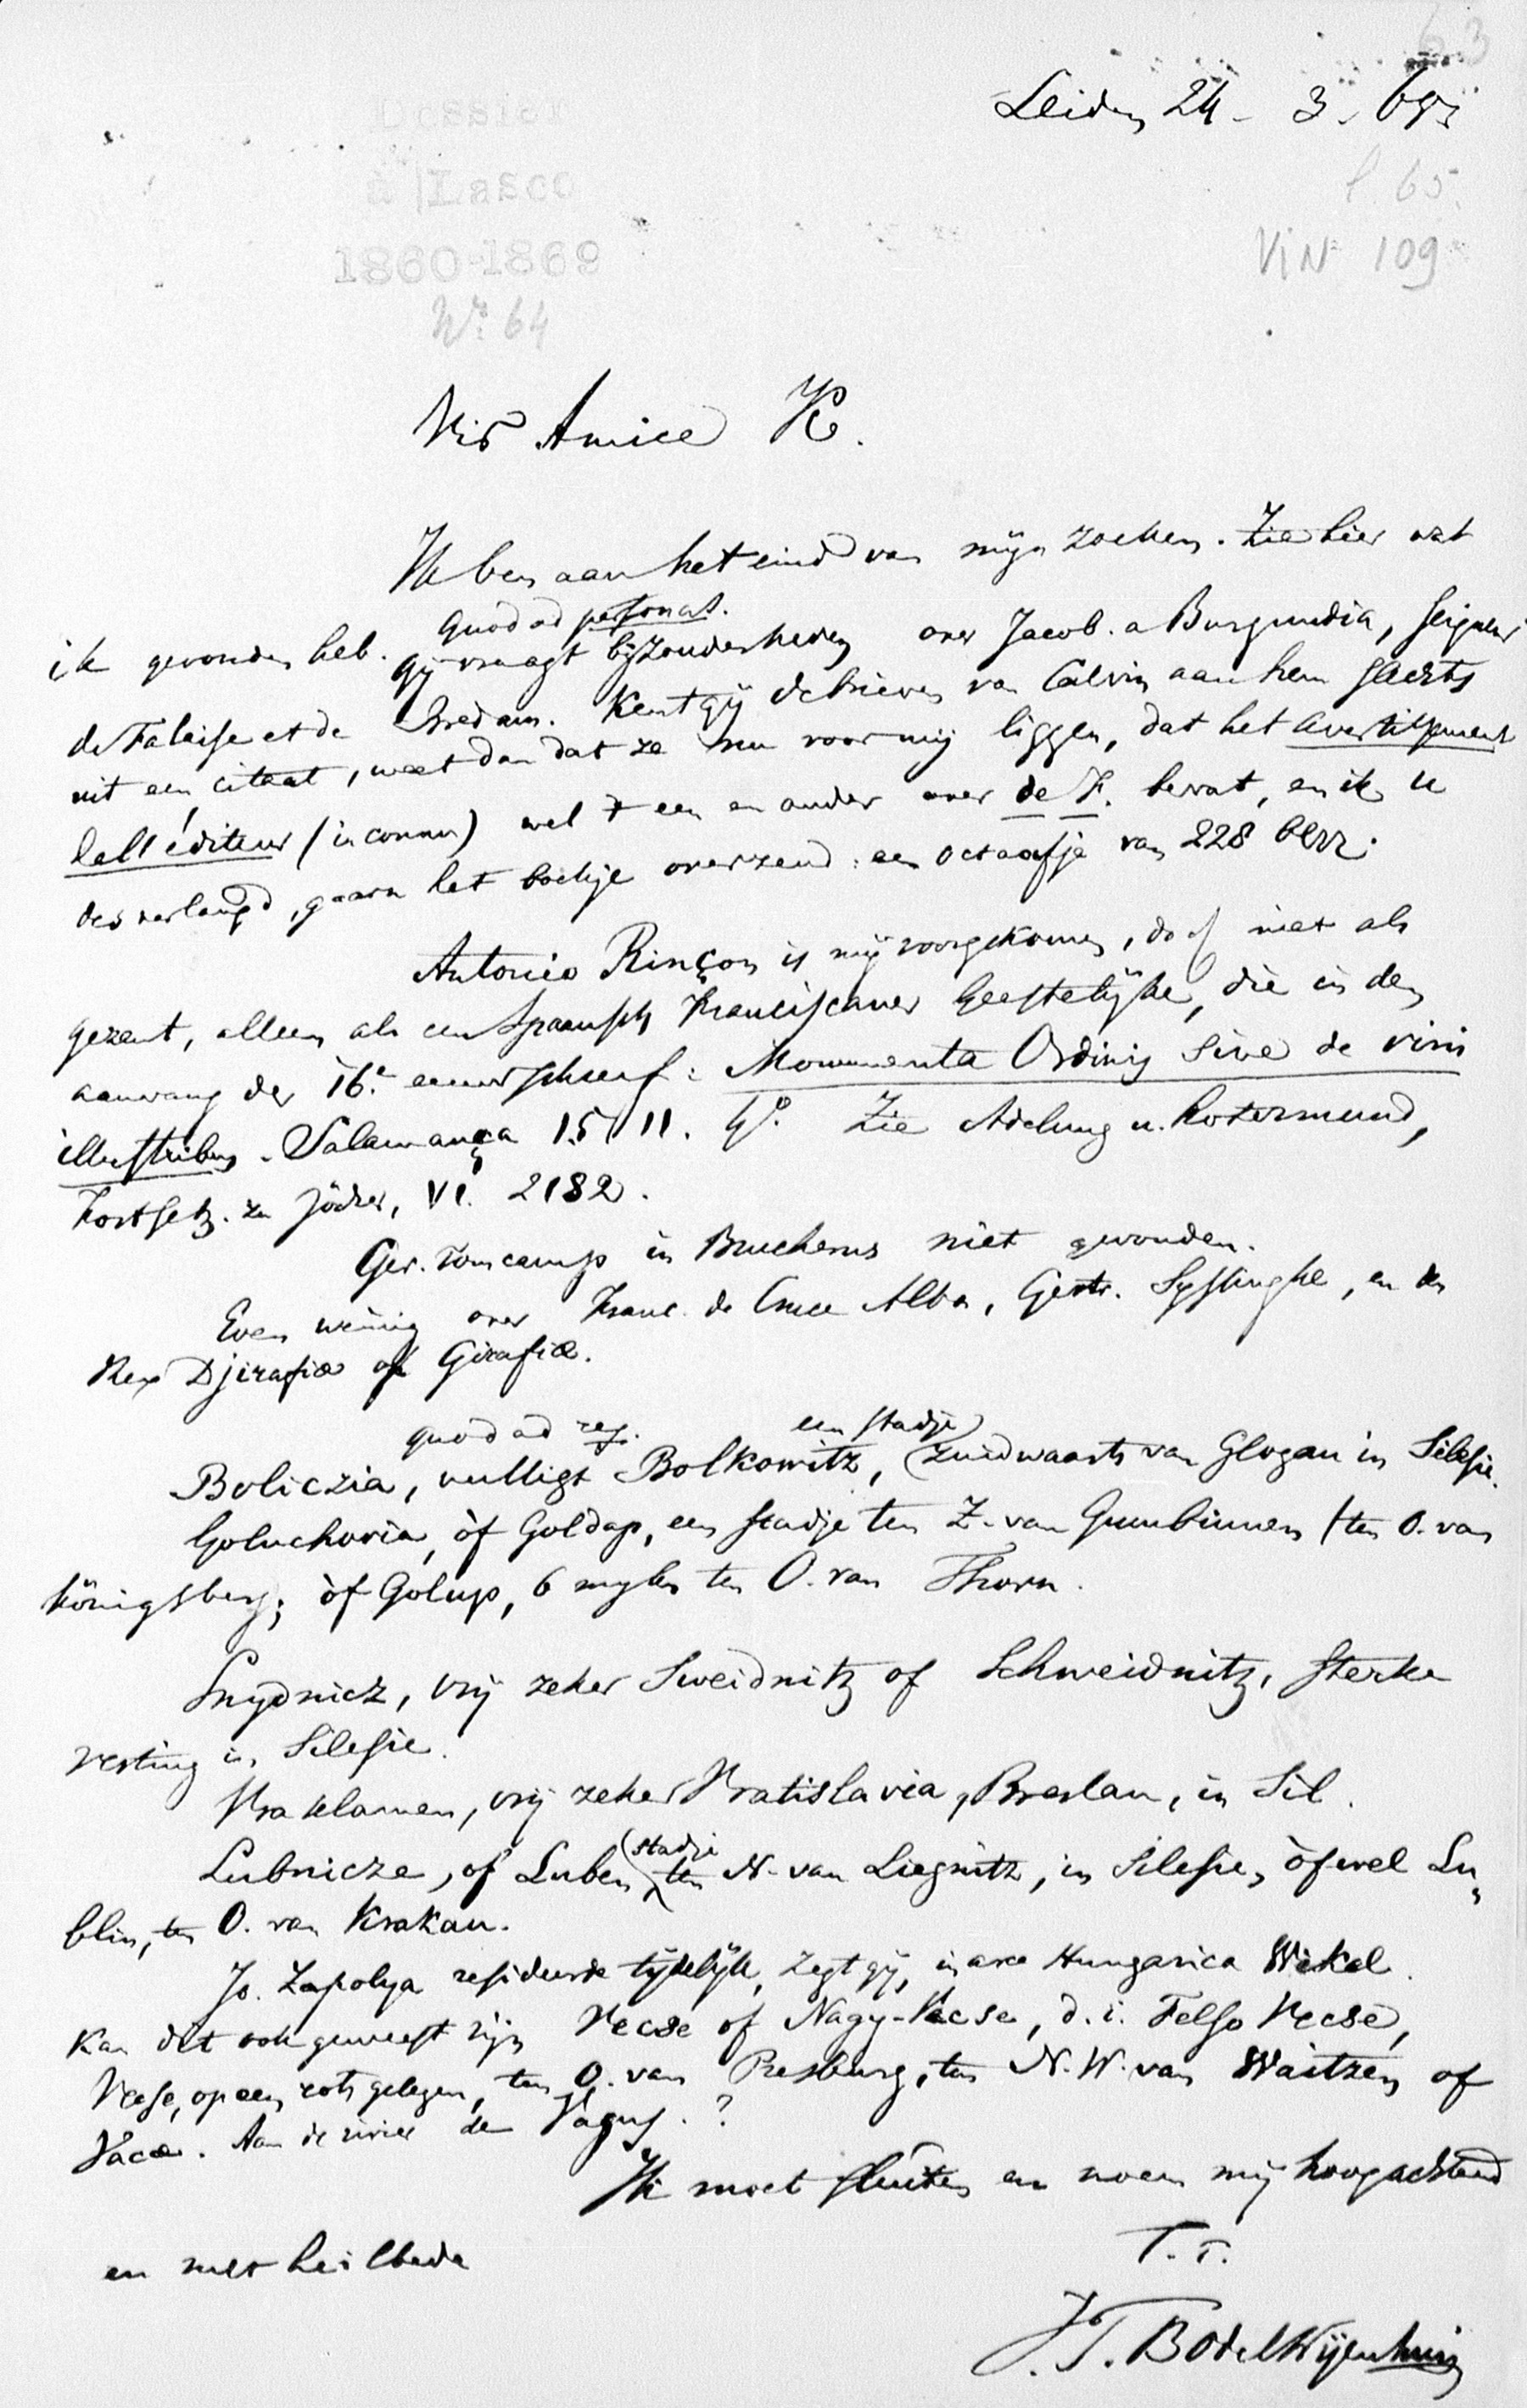 63
Leiden 24 - 3 - 65
Dossier
à Lasco
1860-1869
No. 64
l. 65.
VIN 109
Vir Amice K.
Ik ben aan het eind van mijn zoeken. Zie hier wat
ik gevonden heb.
quod ad personas.
Gij vraagt bijzonderheden over Jacob. a Burgundia, Seigneur
de Falaise et de Bredam. Kent gij de brieven van Calvin aan hem slechts
uit een citaat, weet dan dat ze nu voor mij liggen, dat het avertissement
de l'éditeur (inconnu) wel een en ander over de F. bevat, en ik u
des verlangd, gaarn het boekje overzend: een octaafje van 228 blzz.
Antonio Rinçon is mij voorgekomen, doch niet als
gezant, alleen als een Spaansch Franciscaner Geestelijke, die in den
aanvang der 16e. eeuw schreef: Monumenta Ordinis sive de viris
illustribus. Salamança 1511. 4o. Zie Adelung u. Rotermund,
Fortsetz. zu Jöcher, VI. 2182.
Ger. Tomcamp in Brucherus niet gevonden.
Even weinig over Franc. de Cruce Alba, Gestr. Syssinghe, en den
Rex Djirafiae of Girafiae.
quod ad reg.
Boliczia, welligt Bolkowitz, (een stadje) zuidwaarts van Glogau in Silesie.
Goluchovia, òf Goldap, een stadje ten Z. van Gumbinnen (ten O. van
Königsberg; òf Golup, 6 mylen ten O. van Thorn.
Snydnicz, vrij zeker Sweidnitz of Schweidnitz, sterke
vesting in Silesie.
Vraklamen, vrij zeker Vratislavia, Breslau, in Sil.
Lubnicze, of Luben, (stadje ten N. van Liegnitz, in Silesie, òfwel Lu„
blin, ten O. van Krakau.
Jo. Zapolya resideerde tijdelijk, zegt gij, in arce Hungarica Wekel.
Kan dit ook geweest zijn Vecse of Nagy-Vecse, d. i. Felso Vecse,
Veese, op een rots gelegen, ten O. van Presburg, ten N. W. van Waitzen of
Vacæ. Aan de rivier de Vagus. ?
Ik moet sluiten en noem mij hoogachtend
en met heilbede
T. T.
J. T. Bodel Nijenhuis